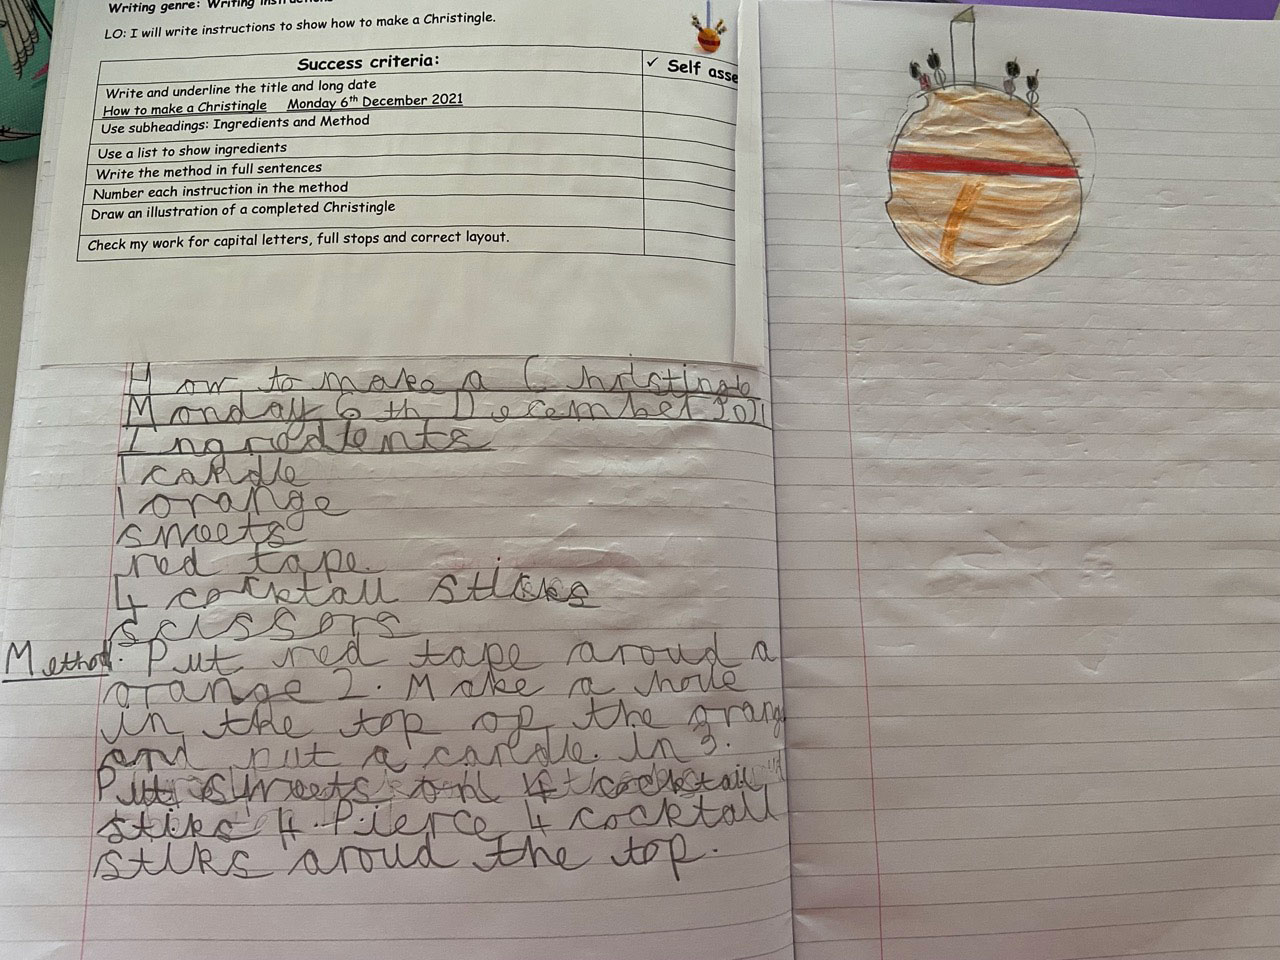 Writing genre: Writing
LO: I will write instructions to show how to make a Christingle.
Success criteria:
✓ Self asse
Write and underline the title and long date
How to make a Christingle Monday 6th December 2021
Use subheadings: Ingredients and Method
Use a list to show ingredients
Write the method in full sentences
Number each instruction in the method
Draw an illustration of a completed Christingle
Check my work for capital letters, full stops and correct layout.
How to make a Christingle
Monday 6th December 2021
Ingredients
1 candle
1 orange
sweets
red tape.
4 cocktail sticks
scissors
Method. Put red tape aroud a
orange 2. Make a hole
in the top of the orange
and put a candle. in 3.
Put sweets on 4 cocktail
stiks 4. Pierce 4 cocktail
stiks aroud the top.